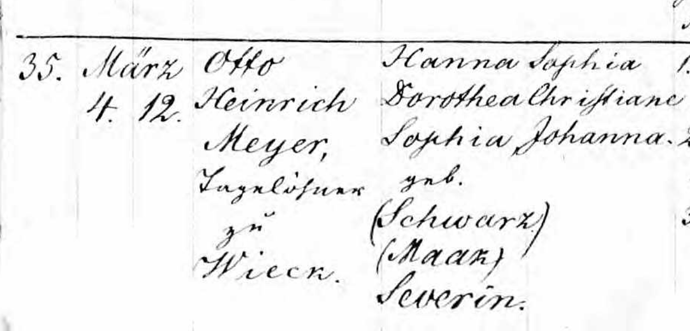 35. März Otto Hanna Sophia 1.
4. 12. Heinrich Dorothea Christiane
Meyer, Sophia Johanna. 2
Tagelöhner geb.
zu (Schwarz)
Wieck. (Maak)
Severin.